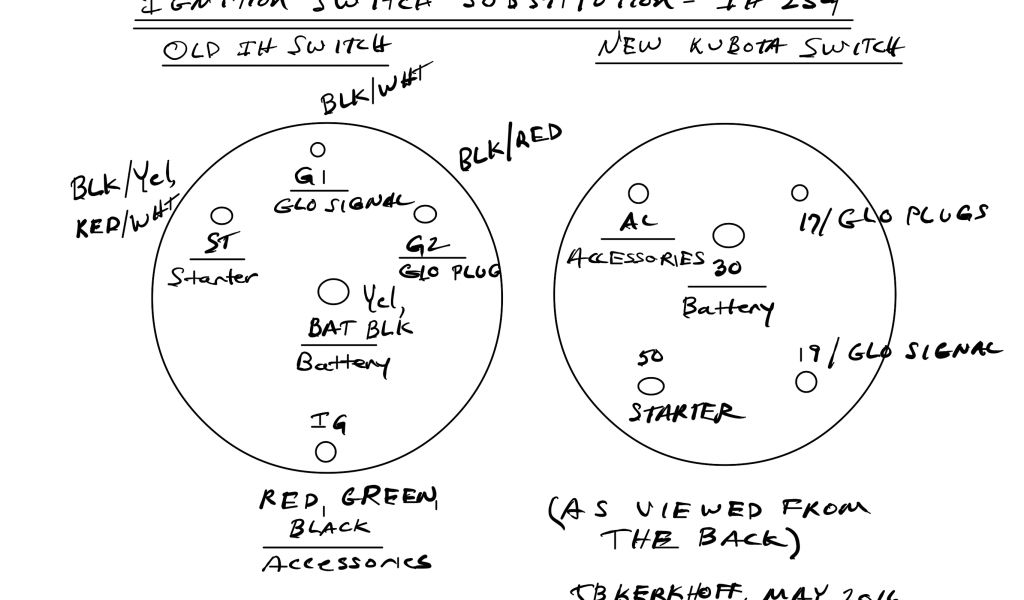 IGNITION SWITCH SUBSTITUTION - IH 254
OLD IH SWITCH
NEW KUBOTA SWITCH
BLK/WHT
BLK/RED
BLK/Yel,
RED/WHT
G1
GLO SIGNAL
ST
Starter
G2
GLO PLUG
Yel,
BAT BLK
Battery
IG
RED, GREEN,
BLACK
Accessories
AC
ACCESSORIES
17/GLO PLUGS
30
Battery
50
STARTER
19/GLO SIGNAL
(AS VIEWED FROM
THE BACK)
JBKERKHOFF, MAY 2016